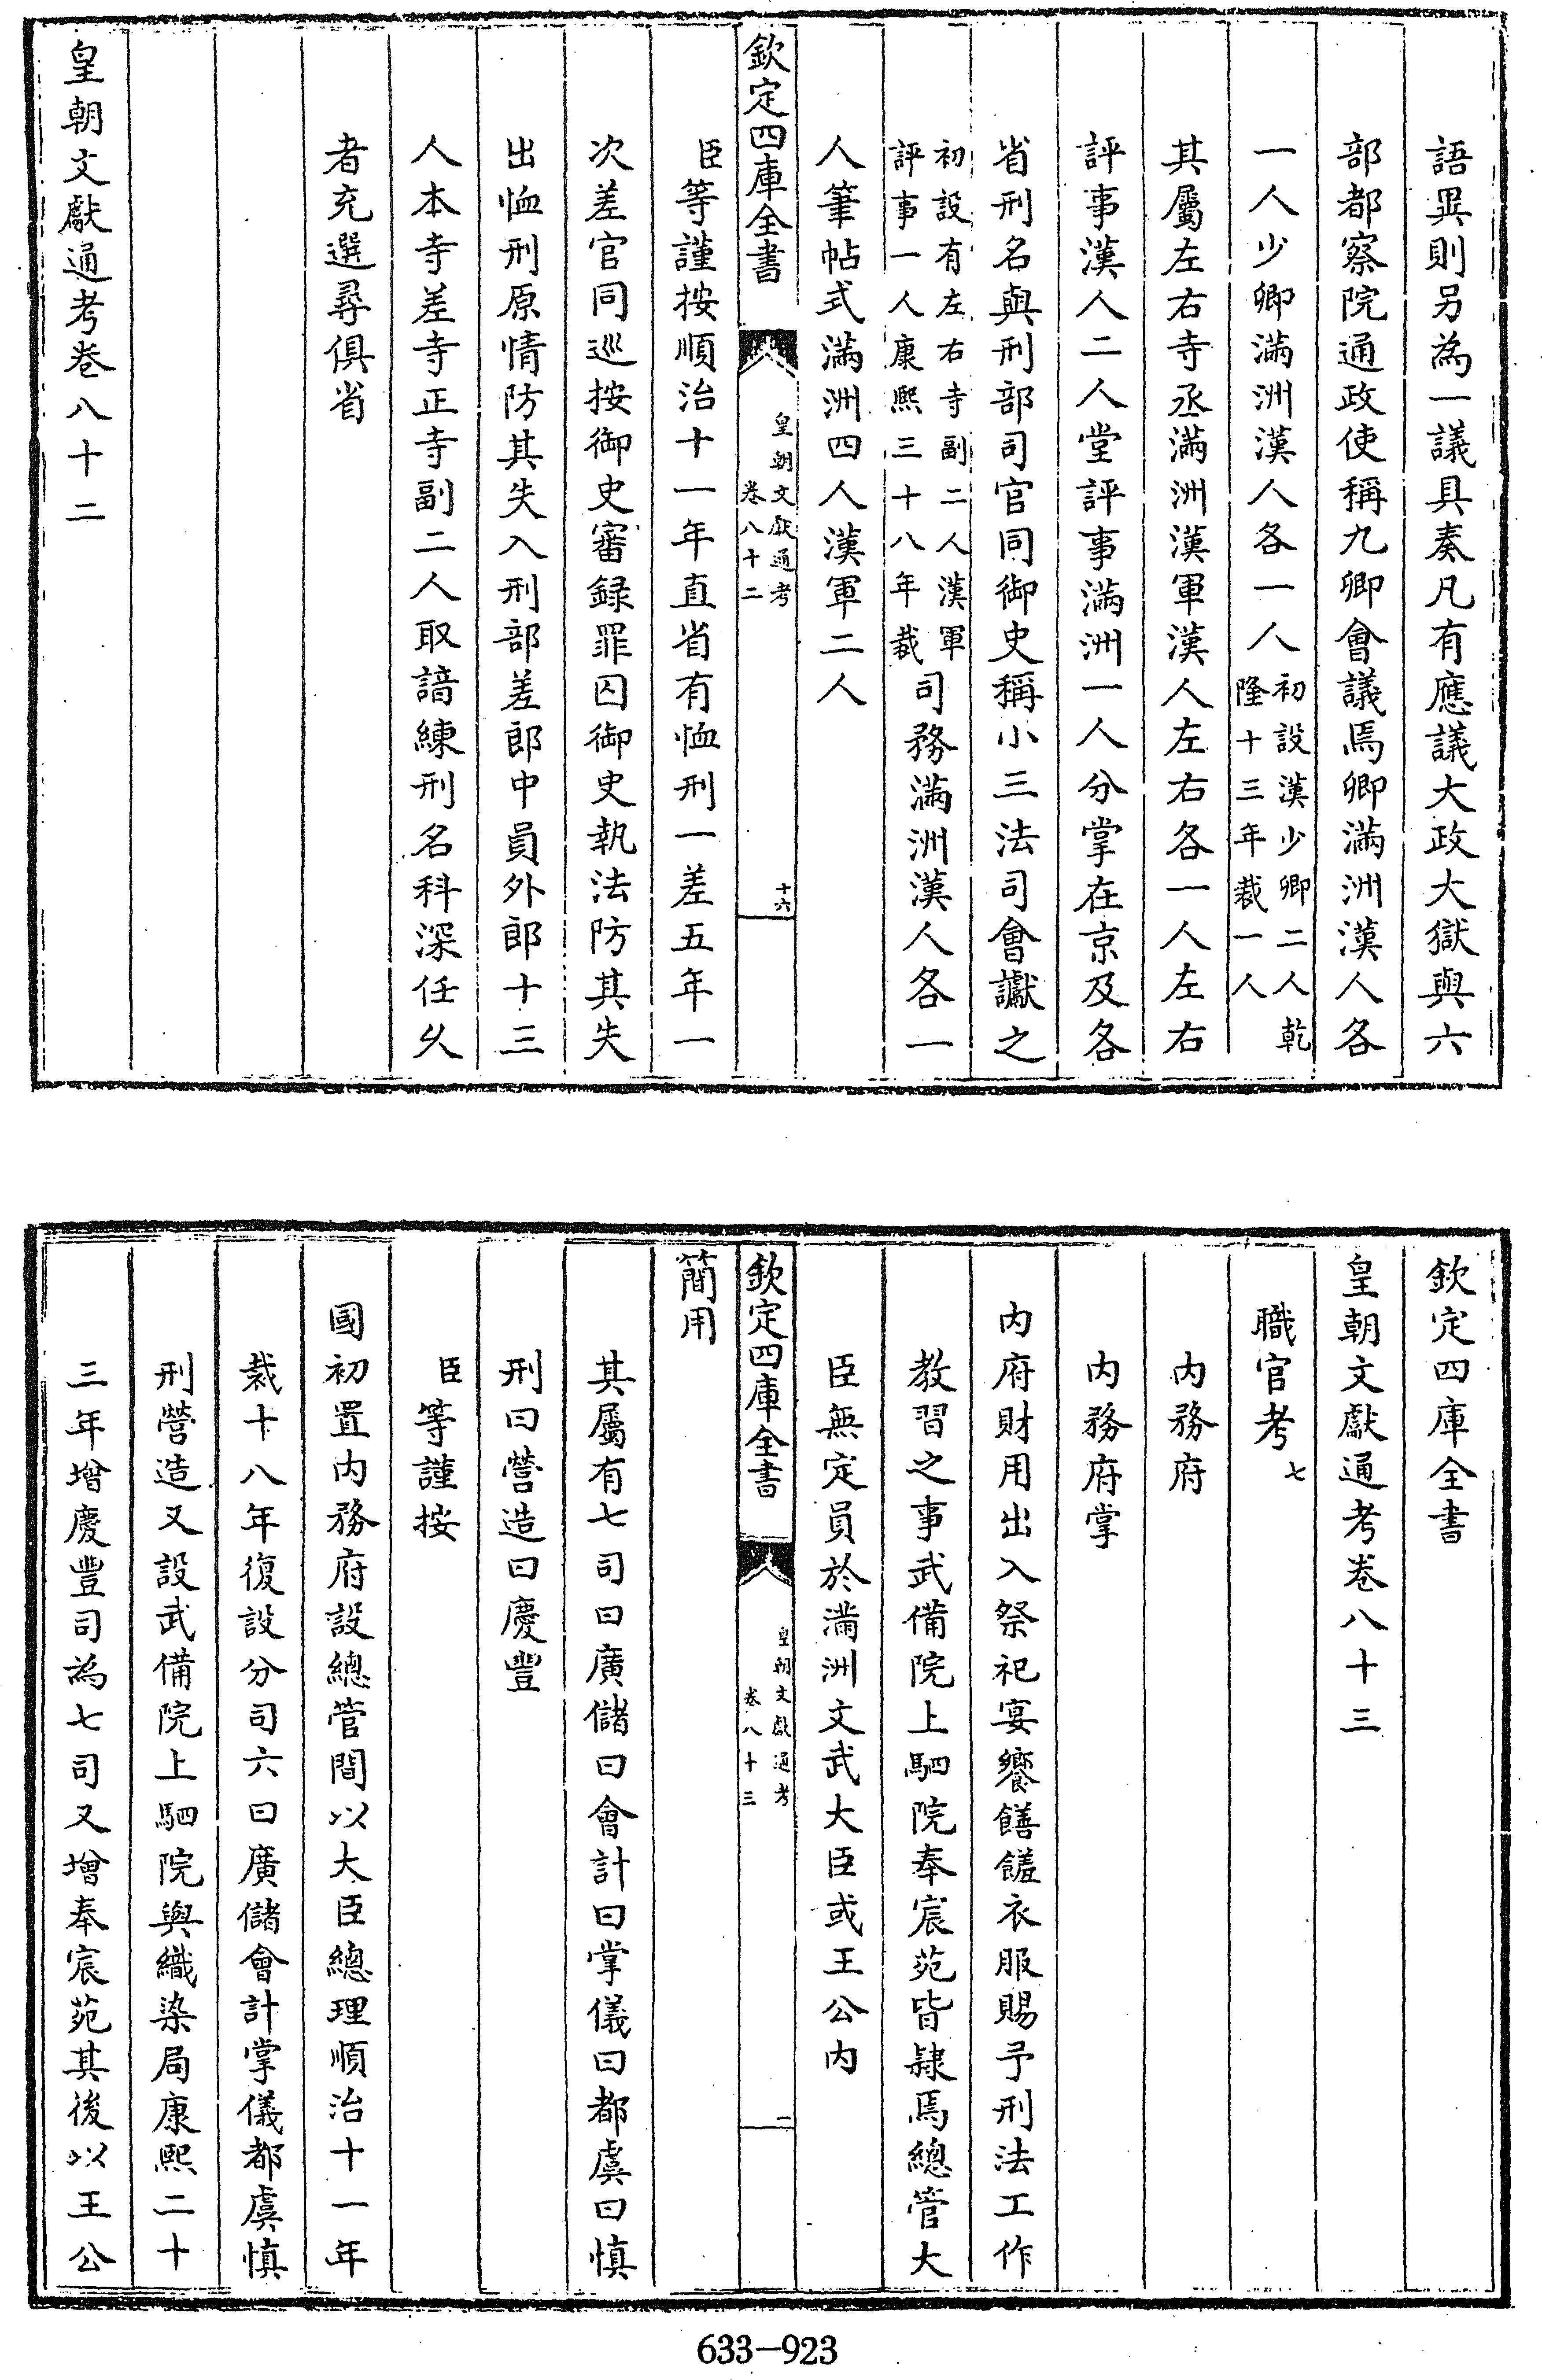 語異則另為一議具奏凡有應議大政大獄與六
部都察院通政使稱九卿會議焉卿滿洲漢人各
一人少卿滿洲漢人各一人初設漢少卿二人乾
隆十三年裁一人
其屬左右寺丞滿洲漢軍漢人左右各一人左右
評事漢人二人堂評事滿洲一人分掌在京及各
省刑名與刑部司官同御史稱小三法司會讞之
初設有左右寺副二人漢軍
評事一人康熙三十八年裁
司務滿洲漢人各一
人筆帖式滿洲四人漢軍二人
欽定四庫全書
皇朝文獻通考
卷八十二
十六
臣等謹按順治十一年直省有恤刑一差五年一
次差官同巡按御史審録罪囚御史執法防其失
出恤刑原情防其失入刑部差郎中員外郎十三
人本寺差寺正寺副二人取諳練刑名科深任久
者充選尋俱省
皇朝文獻通考卷八十二
欽定四庫全書
皇朝文獻通考卷八十三
職官考七
内務府
内務府掌
内府財用出入祭祀宴饗饍饈衣服賜予刑法工作
教習之事武備院上駟院奉宸苑皆隸焉總管大
臣無定員於滿洲文武大臣或王公内
欽定四庫全書
皇朝文獻通考
卷八十三
一
簡用
其屬有七司曰廣儲曰會計曰掌儀曰都虞曰慎
刑曰營造曰慶豐
臣等謹按
國初置内務府設總管間以大臣總理順治十一年
裁十八年復設分司六曰廣儲會計掌儀都虞慎
刑營造又設武備院上駟院與織染局康熙二十
三年增慶豐司為七司又增奉宸苑其後以王公
633-923